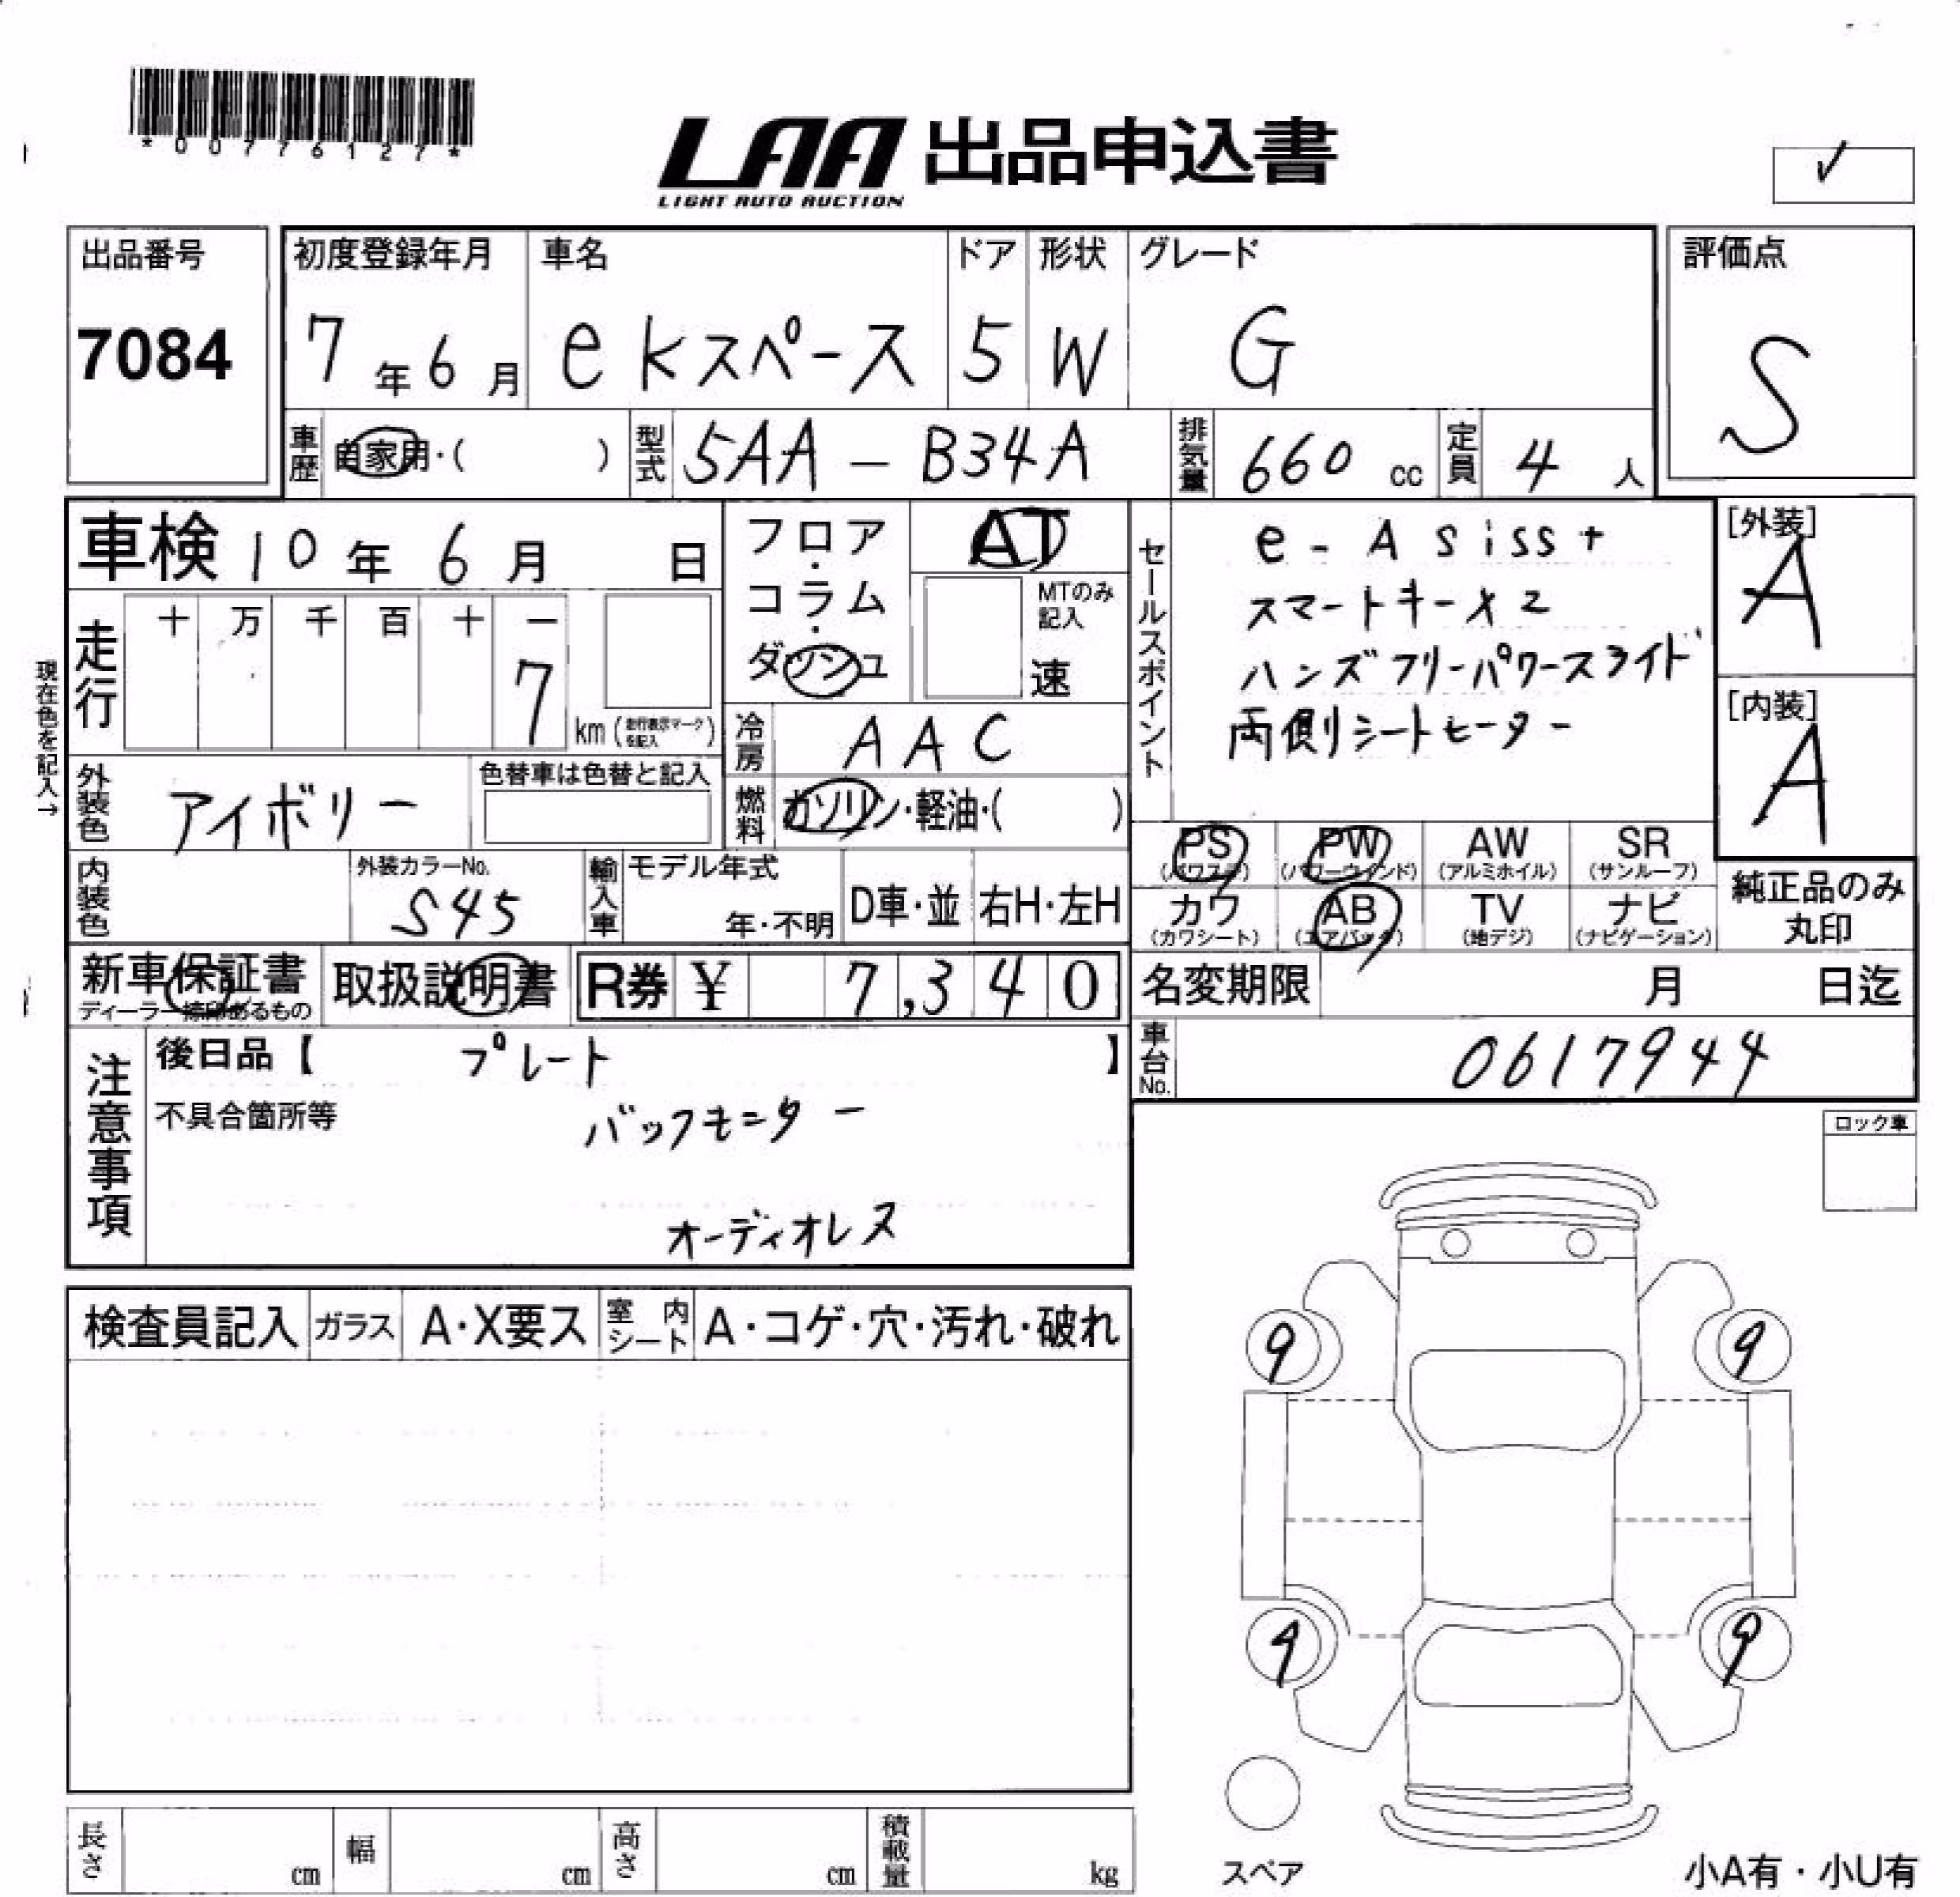 *00776127*
LAA 出品申込書
LIGHT AUTO AUCTION
✓
出品番号
7084
初度登録年月
7年6月
車名
ekスペース
ドア
5
形状
W
グレード
G
評価点
S
車歴 自家用・( )
型式 5AA - B34A
排気量 660 cc
定員 4 人
車検 10年 6月 日
フロア・コラム・ダッシュ
AT
MTのみ記入
速
セールスポイント
e - A siss t
スマートキー×2
ハンズフリーパワースライド
両側シートヒーター
[外装]
A
[内装]
A
現在色を記入→
走行
十 万 千 百 十 一
7
km (走行表示マークを記入)
冷房 AAC
外装色 アイボリー
色替車は色替と記入
燃料 ガソリン・軽油・( )
PS (パワステ)
PW (パワーウインド)
AW (アルミホイル)
SR (サンルーフ)
カワ (カワシート)
AB (エアバック)
TV (地デジ)
ナビ (ナビゲーション)
純正品のみ丸印
内装色
外装カラーNo.
S45
輸入車
モデル年式
年・不明
D車・並
右H・左H
新車保証書
ディーラー捺印あるもの
取扱説明書
R券 ¥ 7,340
名変期限 月 日迄
車台No. 0617944
注意事項
後日品【 プレート 】
不具合箇所等
バックモニター
オーディオレス
ロック車
検査員記入
ガラス A・X要ス
室内シート A・コゲ・穴・汚れ・破れ
9
9
9
9
長さ cm
幅 cm
高さ cm
積載量 kg
スペア
小A有・小U有